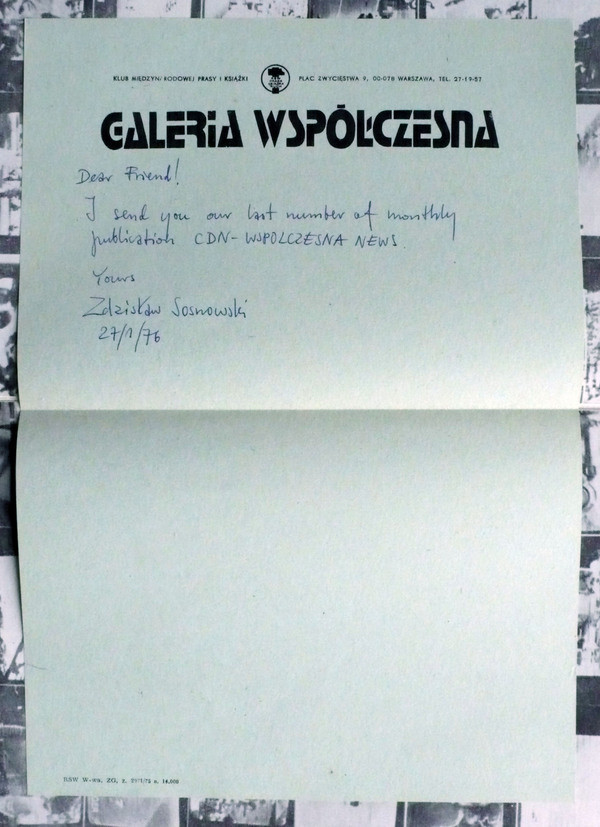 KLUB MIĘDZYNARODOWEJ PRASY I KSIĄŻKI PLAC ZWYCIĘSTWA 9, 00-078 WARSZAWA, TEL. 27-19-57
GALERIA WSPÓŁCZESNA
Dear Friend!
I send you our last number of monthly
publication CDN-WSPOLCZESNA NEWS.
Yours
Zdzisław Sosnowski
27/1/76
RSW W-wa, ZG, z.